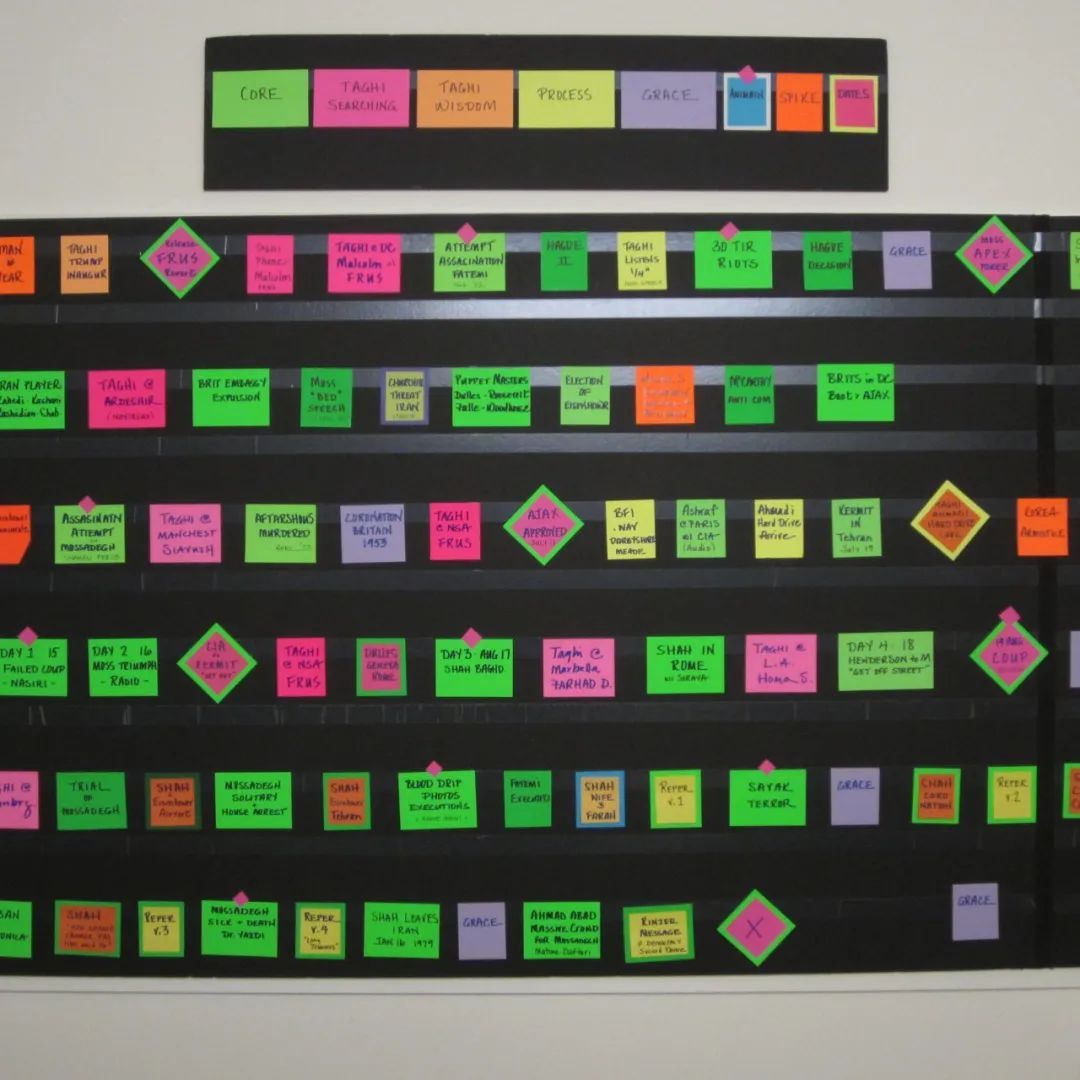 CORE
TAGHI
SEARCHING
TAGHI
WISDOM
PROCESS
GRACE
SPIKE
DATES
MAN
YEAR
TAGHI
TRUMP
INAUGUR
Release
FRUS
TAGHI @ DC
Malcolm
FRUS
ATTEMPT
ASSACINATION
FATEMI
HAGUE
II
TAGHI
LISTENS
1/4"
30 TIR
RIOTS
HAGUE
DECISION
GRACE
MOSS
APEX
POWER
RAN PLAYER
TAGHI @
ARDESHIR
BRIT EMBASSY
EXPULSION
MOSS
"BED"
SPEECH
CHURCHILL
THREAT
IRAN
PUPPET MASTERS
Dulles - Roosevelt
ELECTION
OF
McCARTHY
ANTI COM
BRITS in DC
Boot > AJAX
ASSASINATN
ATTEMPT
MOSSADEGH
TAGHI @
MANCHEST
SIAVUSH
AFTARSHOUS
MURDERED
CORONATION
BRITAIN
1953
TAGHI
@ NSA
FRUS
AJAX
APPROVED
BFI
.NAV
DARBYSHIRE
MEADE
Ashraf
@ PARIS
w/ CIA
(Audio)
Ahmadi
Hard Drive
Arrive
KERMIT
IN
Tehran
July 19
TAGHI
AHMADI
HARD DRIVE
KOREA
ARMISTICE
DAY 1 15
FAILED COUP
- NASIRI -
DAY 2 16
MOSS TRIUMPH
- RADIO -
CIA
to
KERMIT
"GET OUT"
TAGHI
@ NSA
FRUS
DULLES
GENEVA
ROME
DAY 3 - AUG 17
SHAH BAGHD
Taghi @
Marbella
FARHAD D.
SHAH IN
ROME
w/ SORAYA
TAGHI @
L.A.
Homa S.
DAY 4 18
HENDERSON to M
"GET OFF STREET"
19 AUG
COUP
TRIAL
OF
MOSSADEGH
SHAH
Eisenhower
Airport
MOSSADEGH
SOLITARY
+
HOUSE ARREST
SHAH
Eisenhower
Tehran
BLOOD DRIP
PHOTOS
EXECUTIONS
FATEMI
EXECUTED
SHAH
WIFE
3
FARAH
REFER
v.1
SAVAK
TERROR
GRACE
SHAH
CORO
NATION
REFER
v.2
SHAH
REFER
v.3
MOSSADEGH
SICK + DEATH
Dr. YAZDI
REFER
v.4
SHAH LEAVES
IRAN
JAN 16 1979
GRACE
AHMAD ABAD
MASSIVE CROWD
FOR MOSSADEGH
RINZER
MESSAGE
X
GRACE